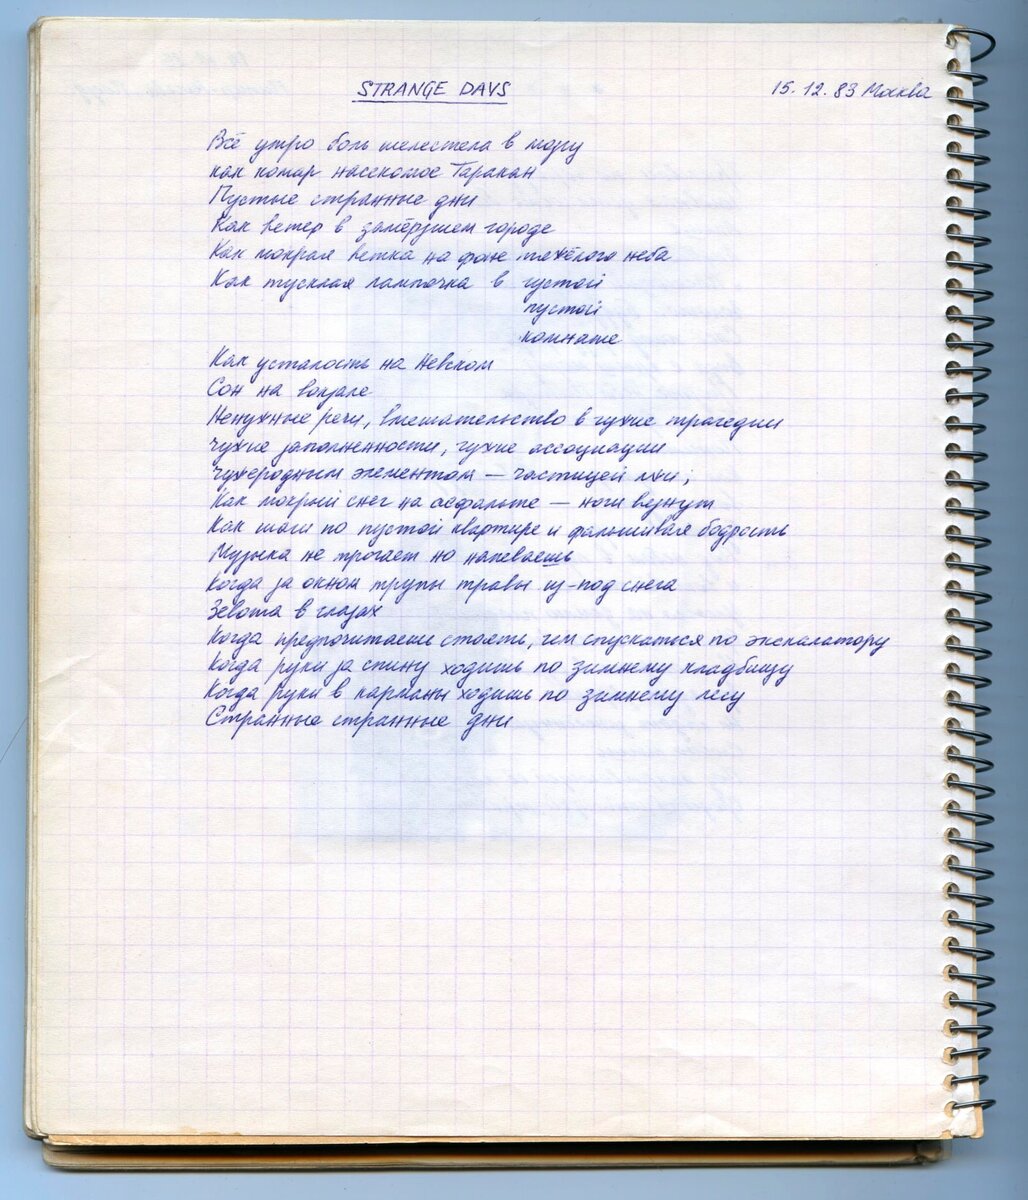 STRANGE DAYS
15.12.83 Москва
Всё утро боль шелестела в мозгу
как комар насекомое Таракан
Пустые странные дни
Как ветер в замёрзшем городе
Как мокрая ветка на фоне тяжёлого неба
Как тусклая лампочка в густой
пустой
комнате
Как усталость на Невском
Сон на вокзале
Ненужные речи, вмешательство в чужие трагедии
чужие заполненности, чужие ассоциации
Чужеродным элементом — частицей лжи;
Как мокрый снег на асфальте — ноги вязнут
Как шаги по пустой квартире и фальшивая бодрость
Музыка не трогает но напеваешь
Когда за окном трупы травы из-под снега
Зевота в глазах
Когда предпочитаешь стоять, чем спускаться по экскалатору
Когда руки за спину ходишь по зимнему кладбищу
Когда руки в карманы ходишь по зимнему лесу
Странные странные дни